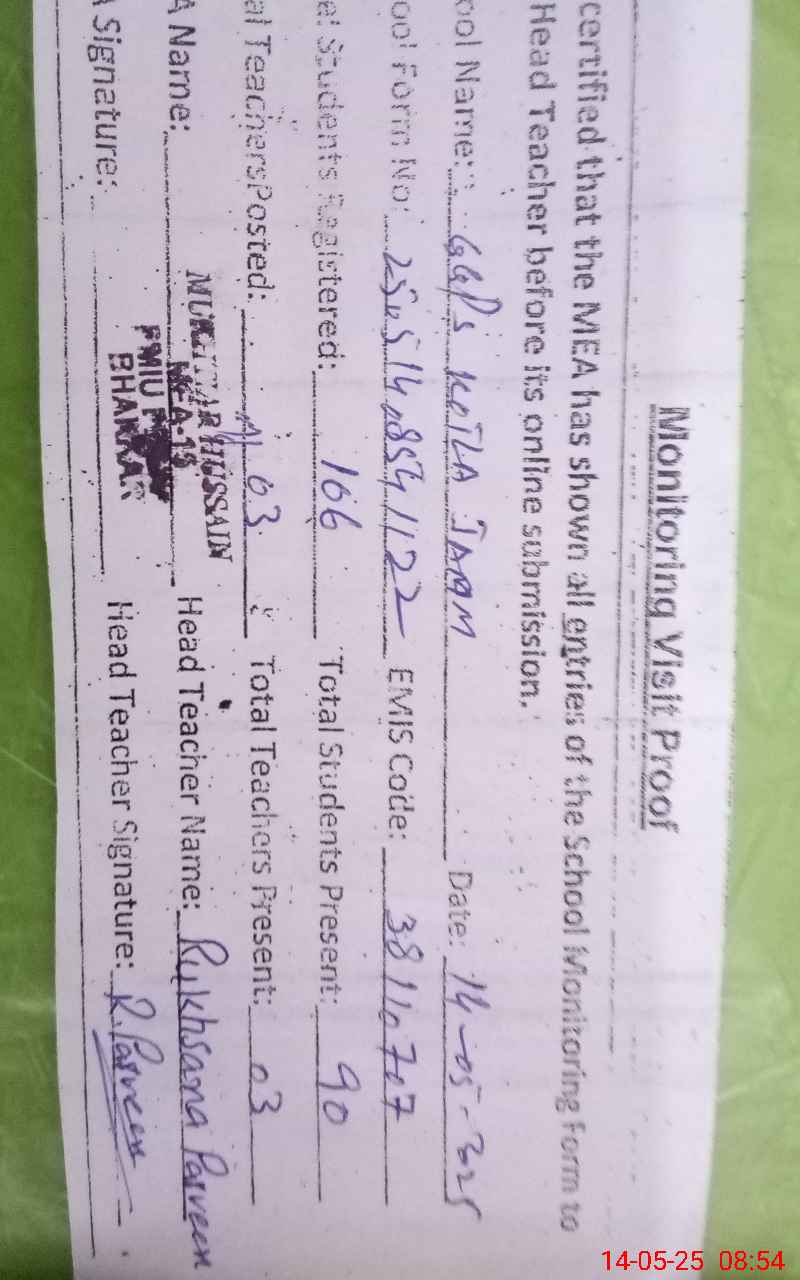 Monitoring Visit Proof
certified that the MEA has shown all entries of the School Monitoring Form to
Head Teacher before its online submission.
ool Name: GGPS KOTLA JAAM Date: 14-05-2025
ool Form No: EMIS Code: 38110707
al Students Registered: 166 Total Students Present: 90
al Teachers Posted: 03 Total Teachers Present: 03
A Name: MUKHTAR HUSSAIN Head Teacher Name: Rukhsana Parveen
MEA-13
PMIU
BHAKKAR
A Signature: Head Teacher Signature: R.Parveen
14-05-25 08:54